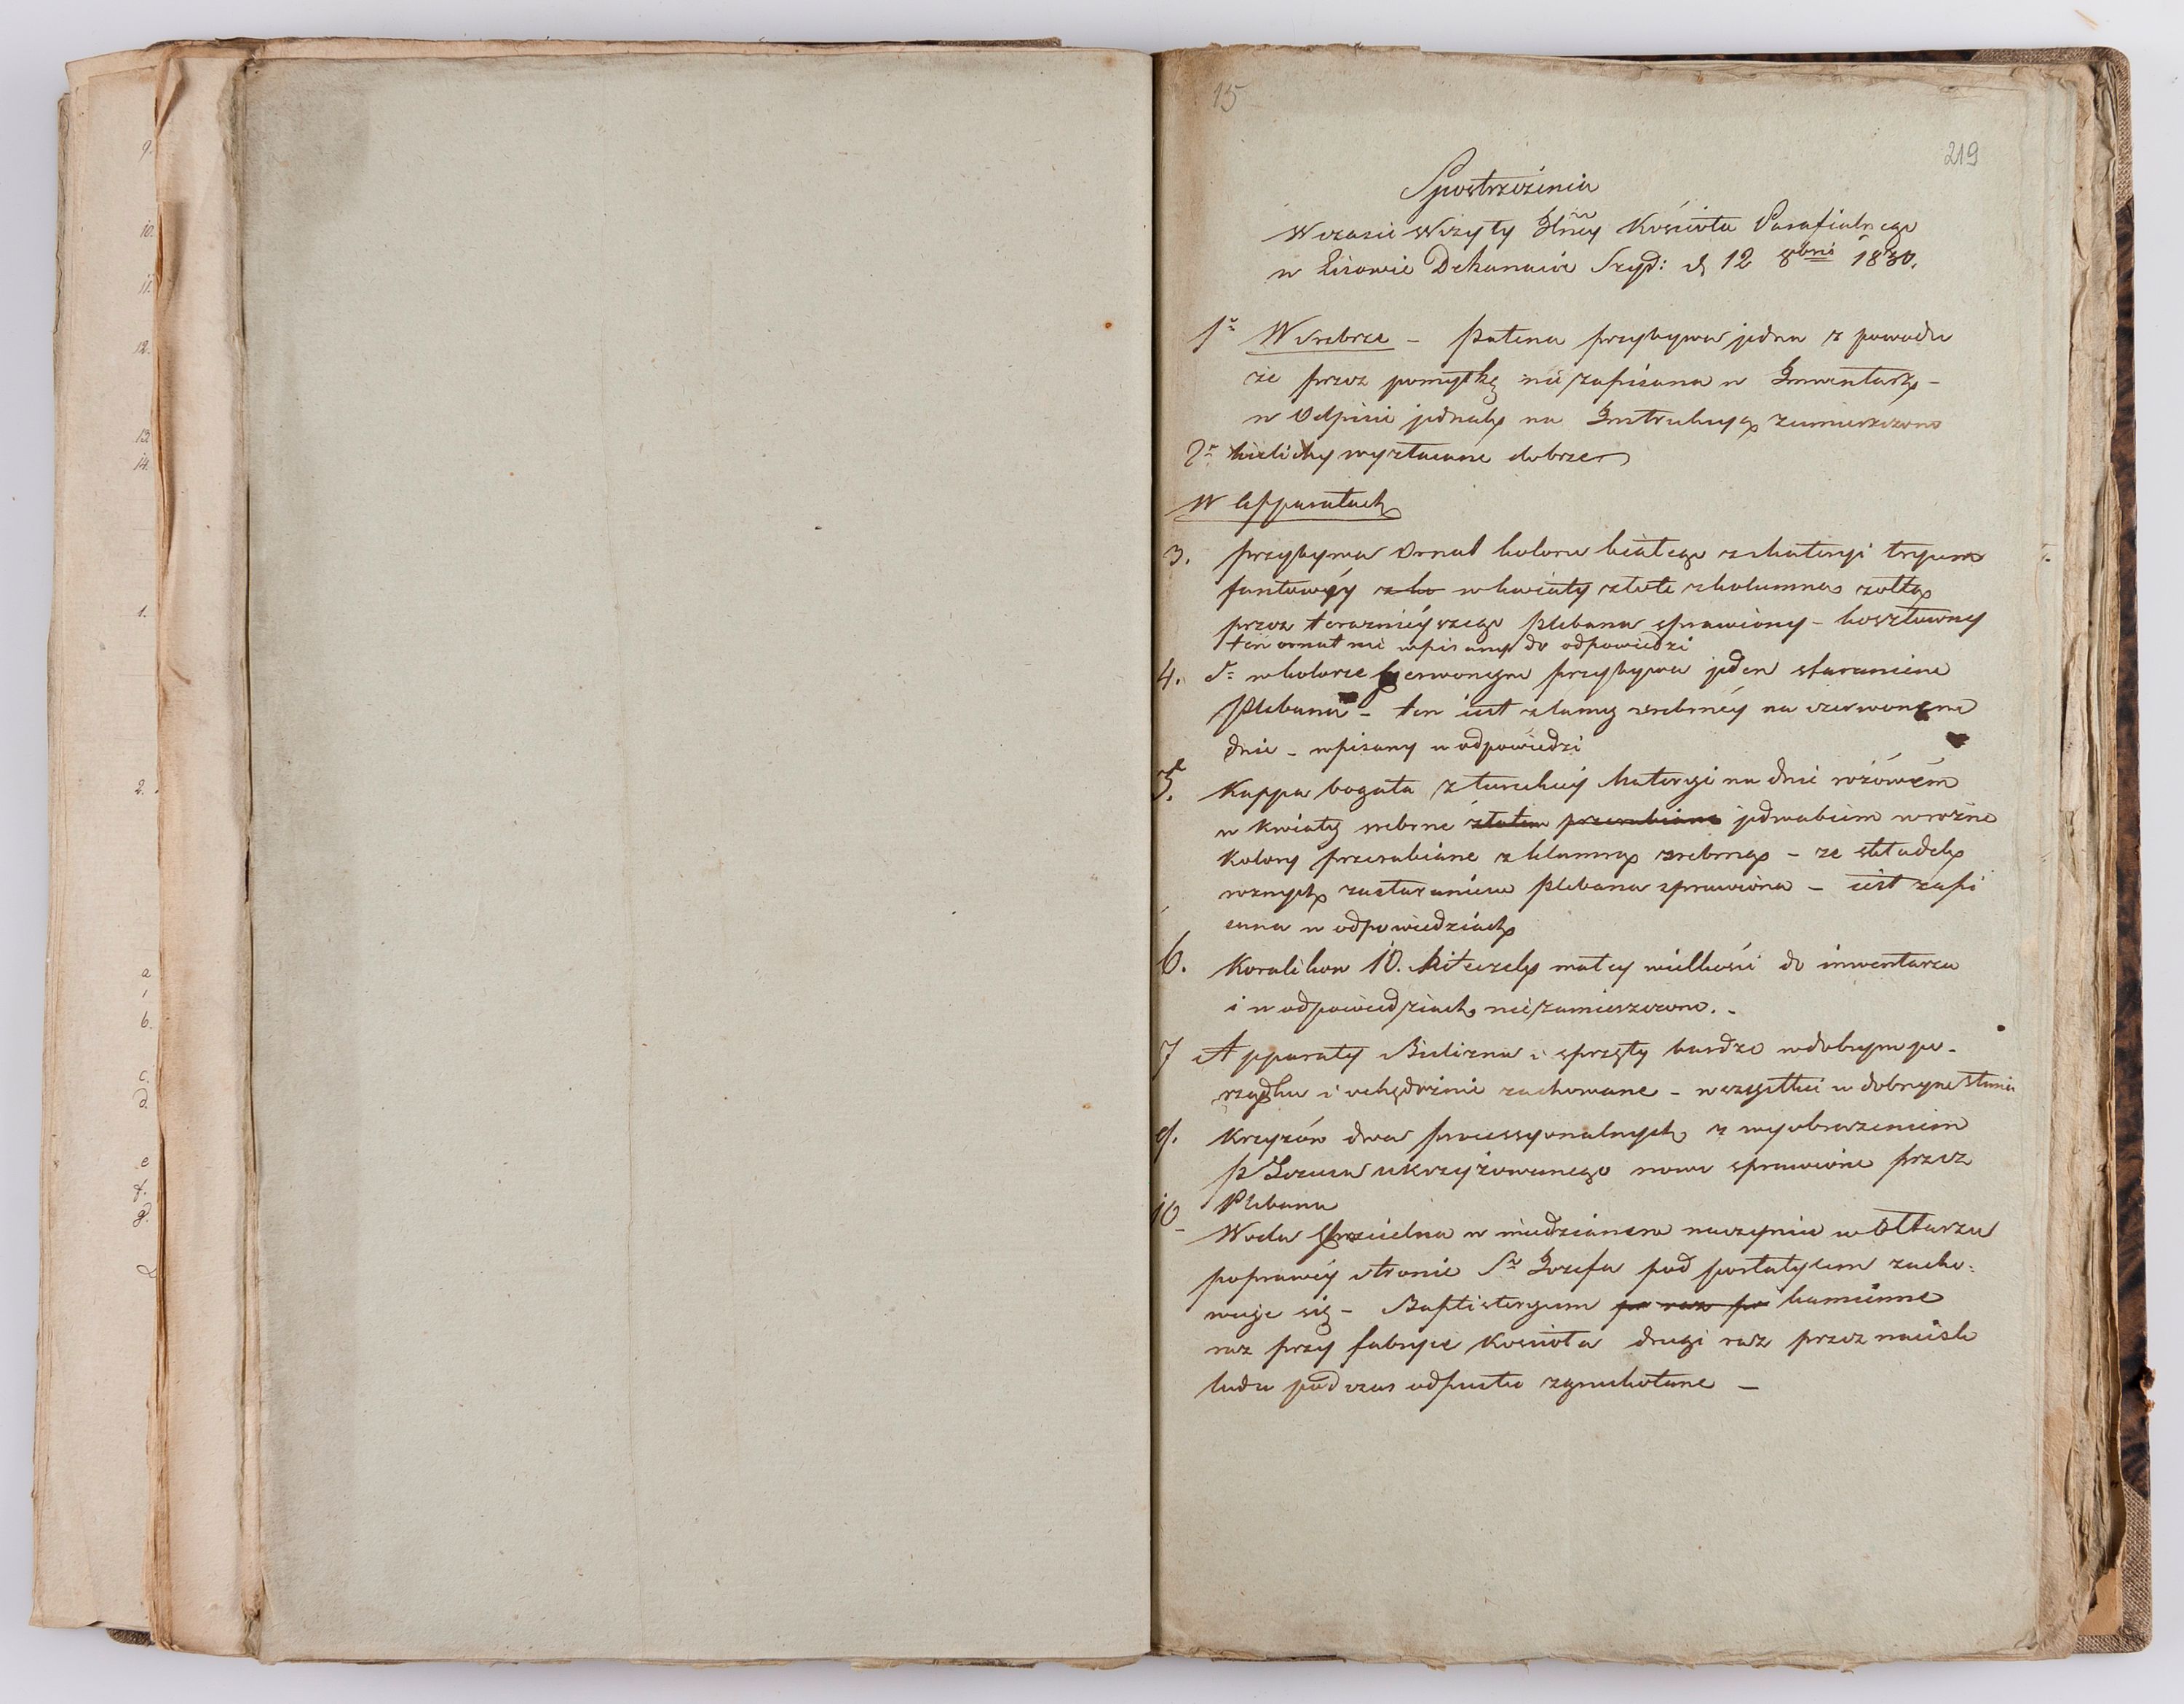 15
219
Spostrzeżenia
W czasie Wizyty Głney Kościoła Parafialnego
w Lisowie Dekanacie Szyd: d. 12 8bris 1830.
1o W srebrze - Patena przybywa jedna z powodu
że przez pomyłkę nie zapisana w Inwentarz -
w Odpisie jednak na Instrukcyą zamieszczono
2o kielichy wyzłacane dobrze
W Apparatach
3. przybywa Ornat koloru białego z materyi tryum
fantowéy z ko w kwiaty złote z kolumną zołtą
przez teraznieyszego Plebana sprawiony - kosztowny
ten ornat nie wpisany do odpowiedzi
4. w kolorze czerwonym przybywa jeden staraniem
Plebana - ten iest z lamy srebrnéy na czerwonem
dnie - wpisany w odpowiedzi
5. Kappa bogata z tureckiey Materyi na dnie różowém
w kwiaty srebrne złotem przerabiane jedwabiem w rożne
kolory przerabiane z klamrą srebrną - ze składek
roznych za staraniem Plebana sprawiona - iest zapi
sana w odpowiedziach
6. Koralikow 10. małey wielkości do inwentarza
i w odpowiedziach nie zamieszczone. -
7 Apparaty Bielizna i sprzęty bardzo w dobrym po-
rządku i ochędoźnie zachowane - wszystkie w dobrym stanie
9. Krzyżów dwa processyonalnych z wyobrazeniem
P Jezusa ukrzyżowanego nowe sprawione przez
Plebana
10 Woda Chrzcielna w miedzianem naczyniu w Ołtarzu
po prawéy stronie So Jozefa pod portatylem zacho-
wuje się - Baptisteryum po raz po kamienne
raz przy fabryce Kościoła drugi raz przez nacisk
ludu podczas odpustu zgruchotane -
9.
10.
11.
12.
13.
14.
1.
2.
a
b.
c.
d.
e
f.
g.